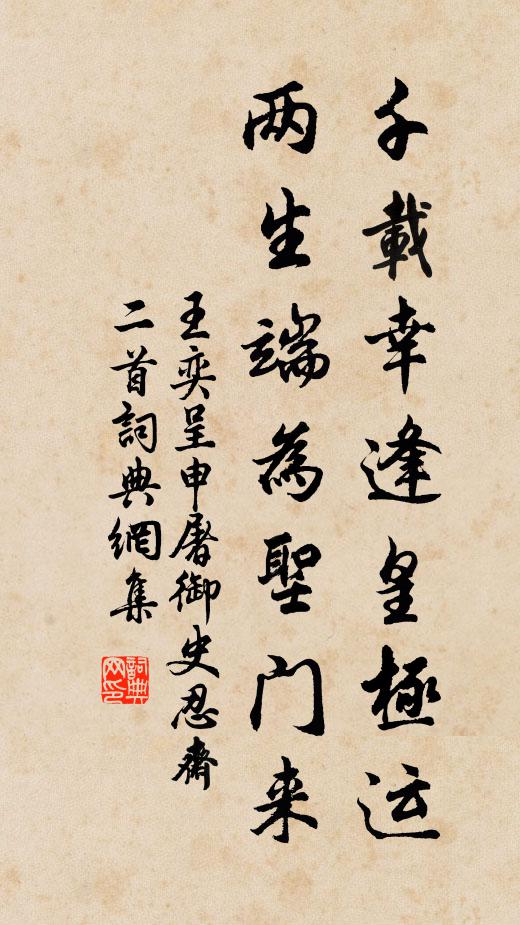 千載幸逢皇極运
两生端為聖门来
王奕呈申屠御史忍齋
二首詞典網集
詞典
网印